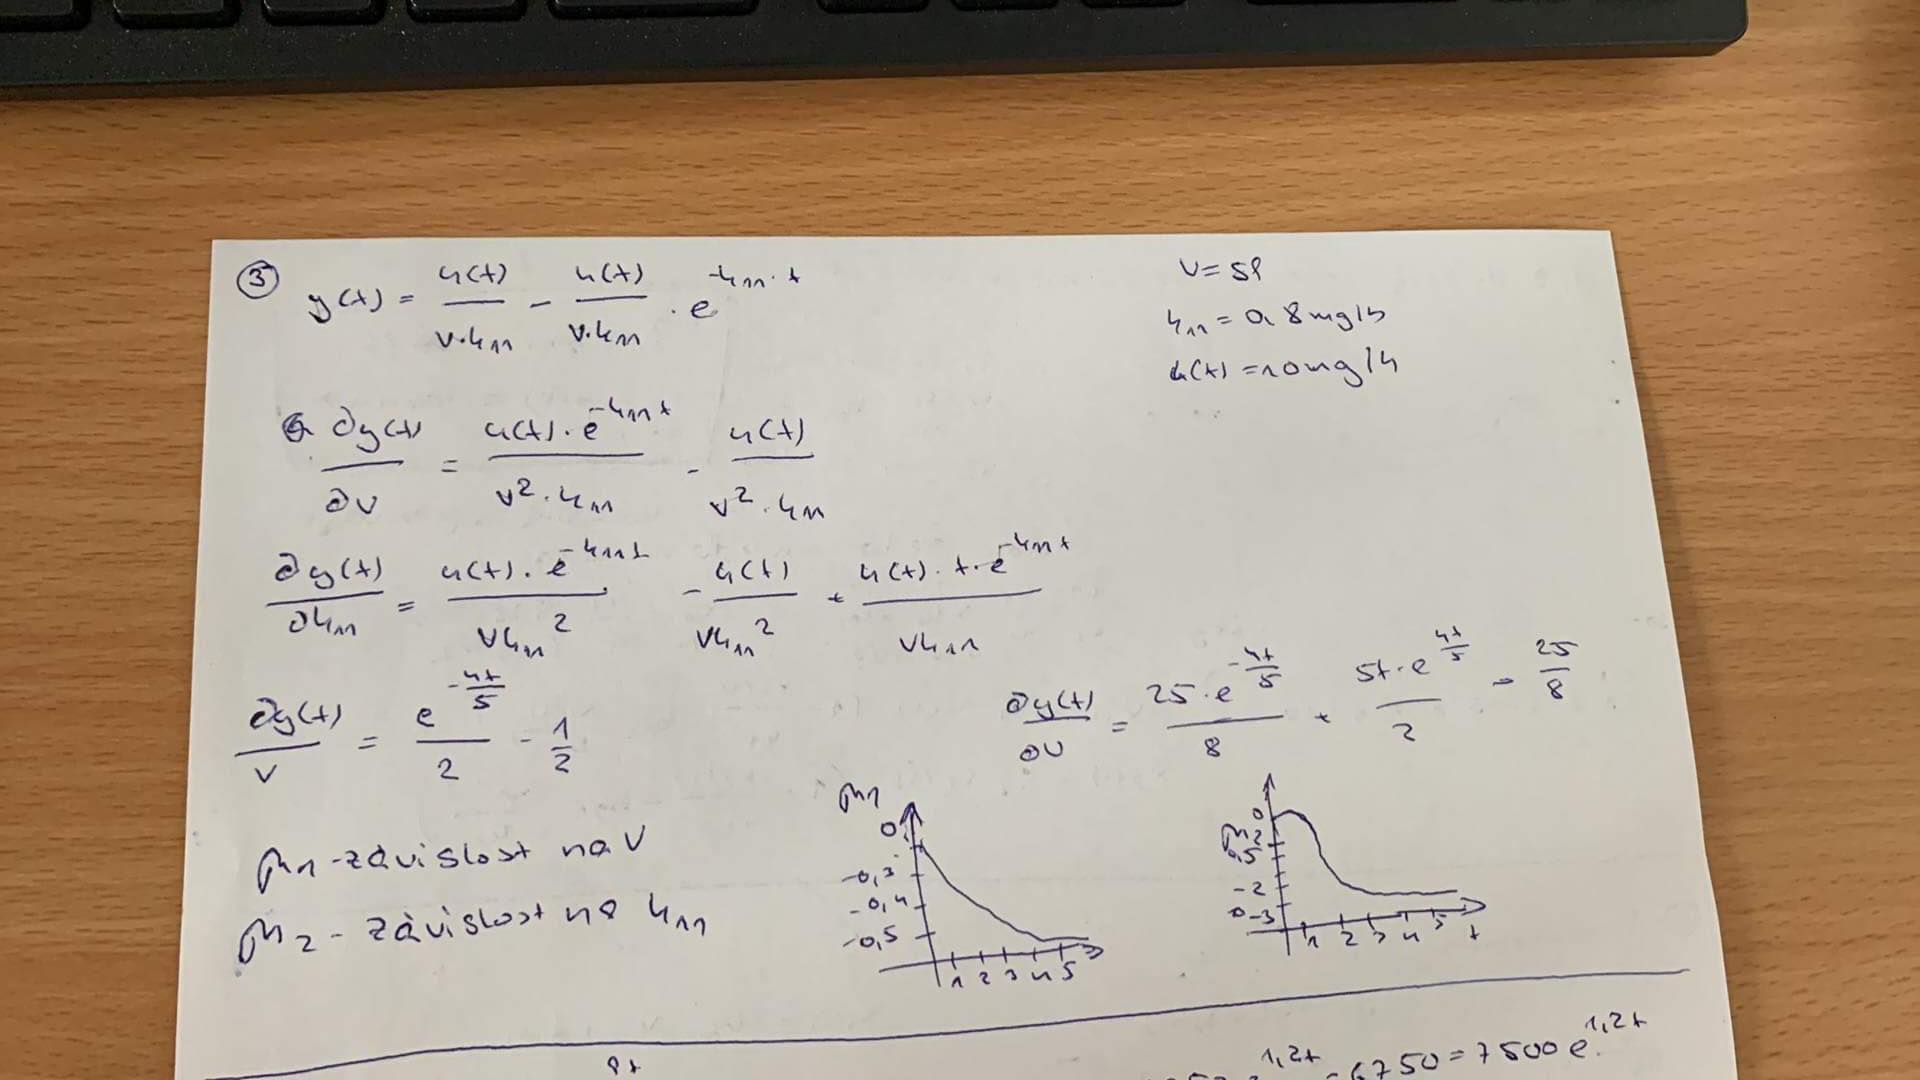 ③ y(t) = u(t)/(v·k₁₁) - u(t)/(v·k₁₁) · e^(-k₁₁·t)
V = 5l
k₁₁ = 0,8mg/h
u(t) = 10mg/h
∂y(t)/∂v = u(t)·e^(-k₁₁t)/(v²·k₁₁) - u(t)/(v²·k₁₁)
∂y(t)/∂k₁₁ = u(t)·e^(-k₁₁t)/(vk₁₁²) - u(t)/(vk₁₁²) + u(t)·t·e^(-k₁₁t)/(vk₁₁)
∂y(t)/v = e^(-4t/5)/2 - 1/2
∂y(t)/∂v = 25·e^(-4t/5)/8 + 5t·e^(4t/5)/2 - 25/8
μ₁ - závislost na V
μ₂ - závislost na k₁₁
μ₁
0
-0,3
-0,4
-0,5
1 2 3 4 5
μ₂
0
0,5
-2
-3
1 2 3 4 5
t
1,2t - 6750 = 7500 e^(1,2t)